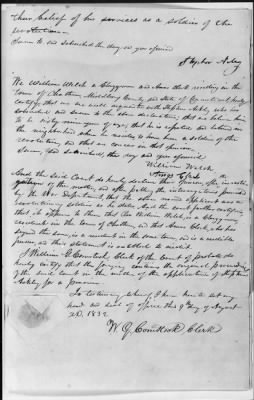 their belief of his services as a soldier of the
revolution
Sworn to and subscribed the day and year aforesaid
Stephen Ackley
We William Welch a Clergyman and Amos Clark residing in the
town of Chatham Middlesex County and State of Connecticut hereby
certify, that we are well acquainted with Stephen Ackley who has
subscribed and sworn to the above declaration; that we believe him
to be years of age; that he is reputed and believed in
the neighborhood where he resides to have been a soldier of the
revolution, and that we concur in that opinion
Sworn, and subscribed the day and year aforesaid
William Welch
Amos Clark
And the said Court do hereby declare their opinion, after investi-
gation of the matter, and after putting the interrogatories prescribed
by the War Department, that the above named applicant was a
revolutionary soldier as he states. And the court further certifies
that it appears to them that Rev William Welch, is a Clergyman
resident in the town of Chatham, and that Amos Clark, who has
signed the same is a resident in the same town, and is a credible
person, and their statement is entitled to credit.
I William G. Comstock, Clerk of the Court of probate do
hereby certify that the foregoing contains the original proceedings
of the said court in the matter of the application of Stephen
Ackley for a pension.
In testimony whereof I have hereunto set my
hand and seal of office this 9 day of August
AD, 1832
W. G. Comstock Clerk